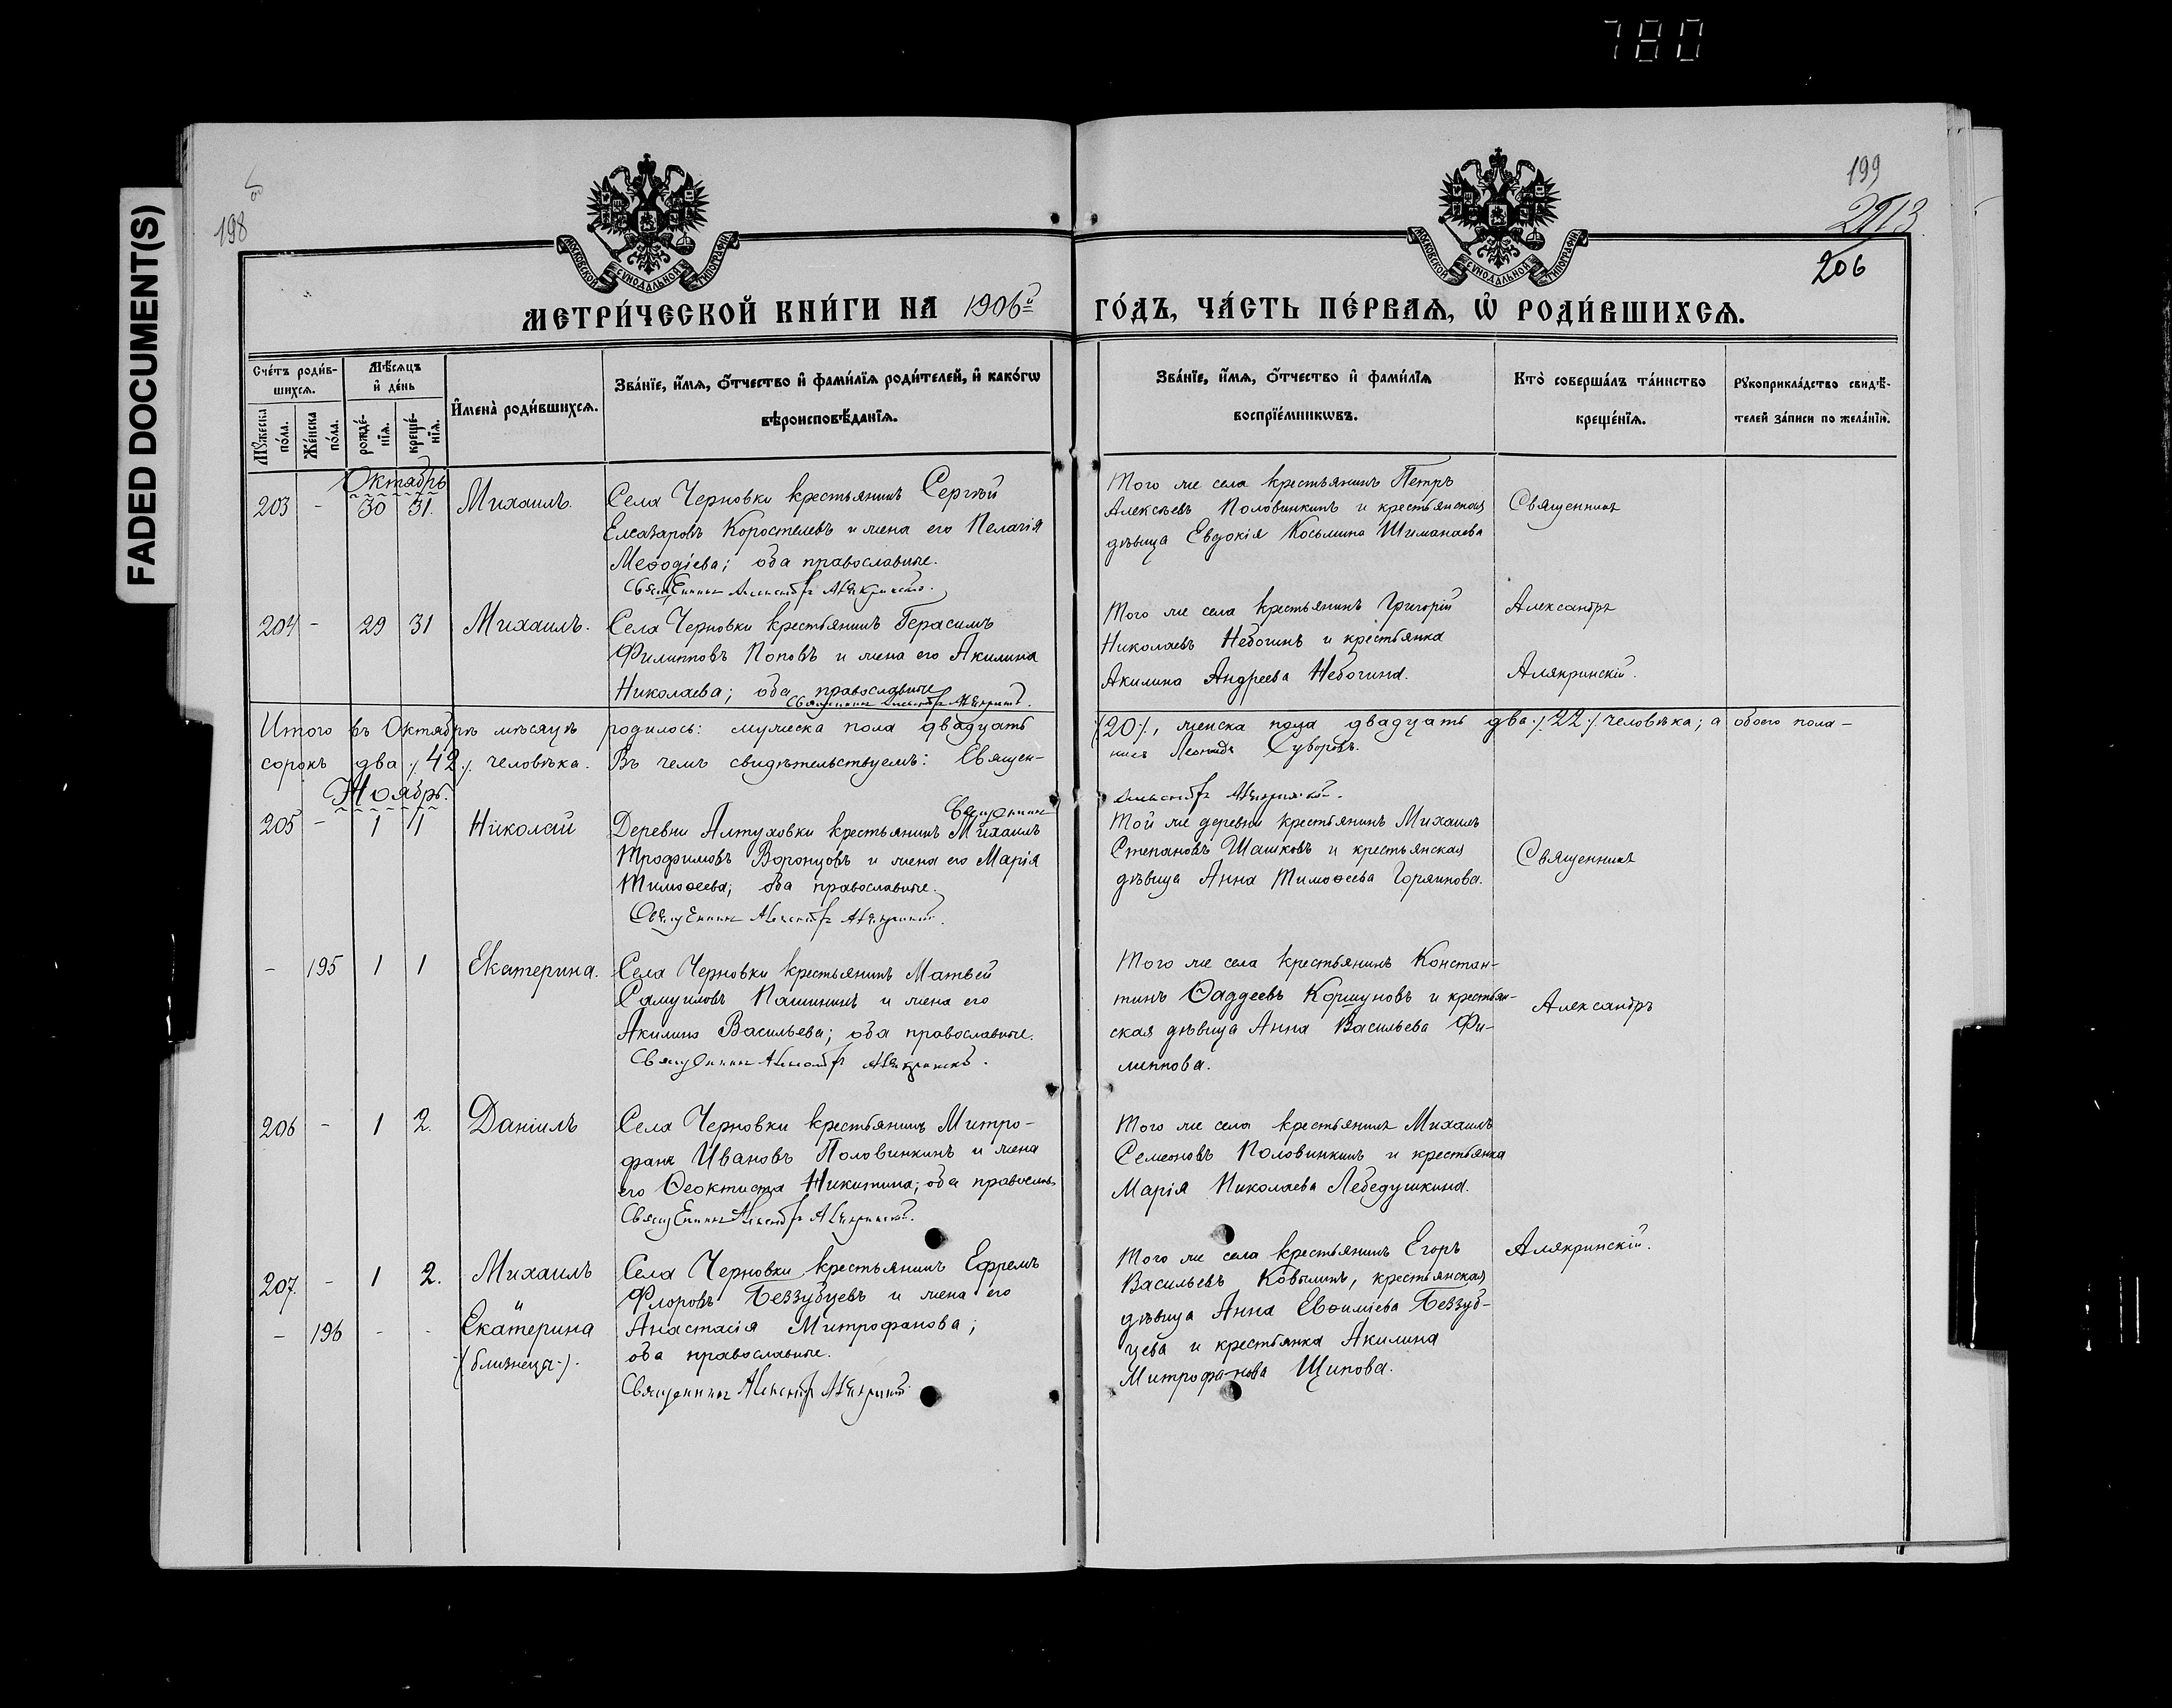 780
FADED DOCUMENT(S)
198
199
206
МОСКОВСКОЙ СѴНОДАЛЬНОЙ ТИПОГРАФІИ
МОСКОВСКОЙ СѴНОДАЛЬНОЙ ТИПОГРАФІИ
МЕТРИ́ЧЕСКОЙ КНИ́ГИ НА 1906й
ГО́ДЪ, ЧА́СТЬ ПЕ́РВАѦ, Ѡ҆ РОДИ́ВШИХСѦ.
Сче́тъ роди́в-
шихсѧ.
Мꙋ́жеска по́ла.
Же́нска по́ла.
Мѣ́сѧцъ
и҆ де́нь
рожде́-
нїѧ.
креще́-
нїѧ.
И҆мена̀ роди́вшихсѧ.
Зва́нїе, и҆́мѧ, ѻ҆́тчество и҆ фами́лїѧ роди́телей, и҆ како́гѡ
вѣроисповѣ́данїѧ.
Зва́нїе, и҆́мѧ, ѻ҆́тчество и҆ фами́лїѧ
воспрїе́мникѡвъ.
Кто̀ соверша́лъ та́инство
креще́нїѧ.
Рꙋкоприкла́дство свидѣ́-
телей за́писи по жела́нїю.
Октябрь
203 - 30 31. Михаилъ.
Села Черновки крестьянинъ Сергѣй
Елеазаровъ Коростелевъ и жена его Пелагія
Меѳодіева; оба православные.
Священникъ Александръ Алякринскій.
Того же села крестьянинъ Петръ
Алексѣевъ Половинкинъ и крестьянская
дѣвица Евдокія Косьмина Шиманаева
Священникъ
204 - 29 31 Михаилъ.
Села Черновки крестьянинъ Герасимъ
Филипповъ Поповъ и жена его Акилина
Николаева; оба православные
Священникъ Александръ Алякринскій.
Того же села крестьянинъ Григорій
Николаевъ Небогинъ и крестьянка
Акилина Андреева Небогина.
Александръ
Алякринскій.
Итого въ Октябрѣ мѣсяцѣ родилось: мужеска пола двадцать
/20/, женска пола двадцать два /22/ человѣка; а обоего пола –
сорокъ два /42/ человѣка. Въ чемъ свидѣтельствуемъ: Священ-
никъ Леонидъ Суворовъ.
Ноябрь.
Священникъ
Александръ Алякринскій.
205 - 1 1 Николай
Деревни Алтуховки крестьянинъ Михаилъ
Трофимовъ Воронцовъ и жена его Марія
Тимоѳеева; оба православные.
Священникъ Александръ Алякринскій.
Той же деревни крестьянинъ Михаилъ
Степановъ Шашковъ и крестьянская
дѣвица Анна Тимоѳеева Горяинова.
Священникъ
- 195 1 1 Екатерина.
Села Черновки крестьянинъ Матвей
Самуиловъ Пашининъ и жена его
Акилина Васильева; оба православные.
Священникъ Александръ Алякринскій.
Того же села крестьянинъ Констан-
тинъ Ѳаддеевъ Коршуновъ и крестьян-
ская дѣвица Анна Васильева Фи-
липпова.
Александръ
206 - 1 2. Даніилъ
Села Черновки крестьянинъ Митро-
фанъ Ивановъ Половинкинъ и жена
его Ѳеоктиста Никитина; оба православн.
Священникъ Александръ Алякринскій.
Того же села крестьянинъ Михаилъ
Семеоновъ Половинкинъ и крестьянка
Марія Николаева Лебедушкина.
Алякринскій.
207. - 1 2. Михаилъ
и
- 196 - - Екатерина
(близнецы).
Села Черновки крестьянинъ Ефремъ
Флоровъ Беззубцевъ и жена его
Анастасія Митрофанова;
оба православные.
Священникъ Александръ Алякринскій.
Того же села крестьянинъ Егоръ
Васильевъ Ковылинъ, крестьянская
дѣвица Анна Евѳиміева Беззуб-
цева и крестьянка Акилина
Митрофанова Щипова.